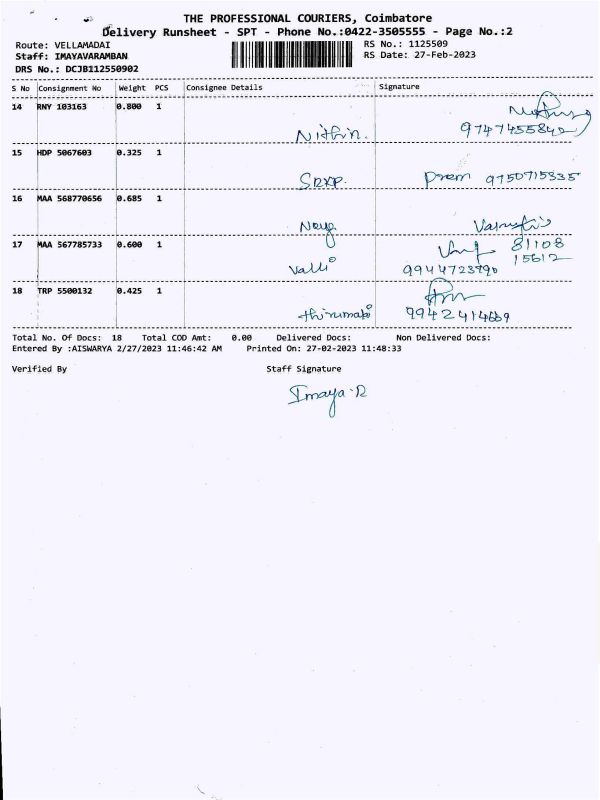 THE PROFESSIONAL COURIERS, Coimbatore
Delivery Runsheet - SPT - Phone No.:0422-3505555 - Page No.:2
Route: VELLAMADAI
RS No.: 1125509
Staff: IMAYAVARAMBAN
RS Date: 27-Feb-2023
DRS No.: DCJB112550902
S No Consignment No Weight PCS Consignee Details Signature
14 RNY 103163 0.800 1
Nithin. 9747455842
15 HDP 5067603 0.325 1
Prem 9750715335
16 MAA 568770656 0.685 1
17 MAA 567785733 0.600 1 81108
15612
Valli 9944723790
18 TRP 5500132 0.425 1
thirumabi 9942414669
Total No. Of Docs: 18 Total COD Amt: 0.00 Delivered Docs: Non Delivered Docs:
Entered By :AISWARYA 2/27/2023 11:46:42 AM Printed On: 27-02-2023 11:48:33
Verified By Staff Signature
Imaya.R